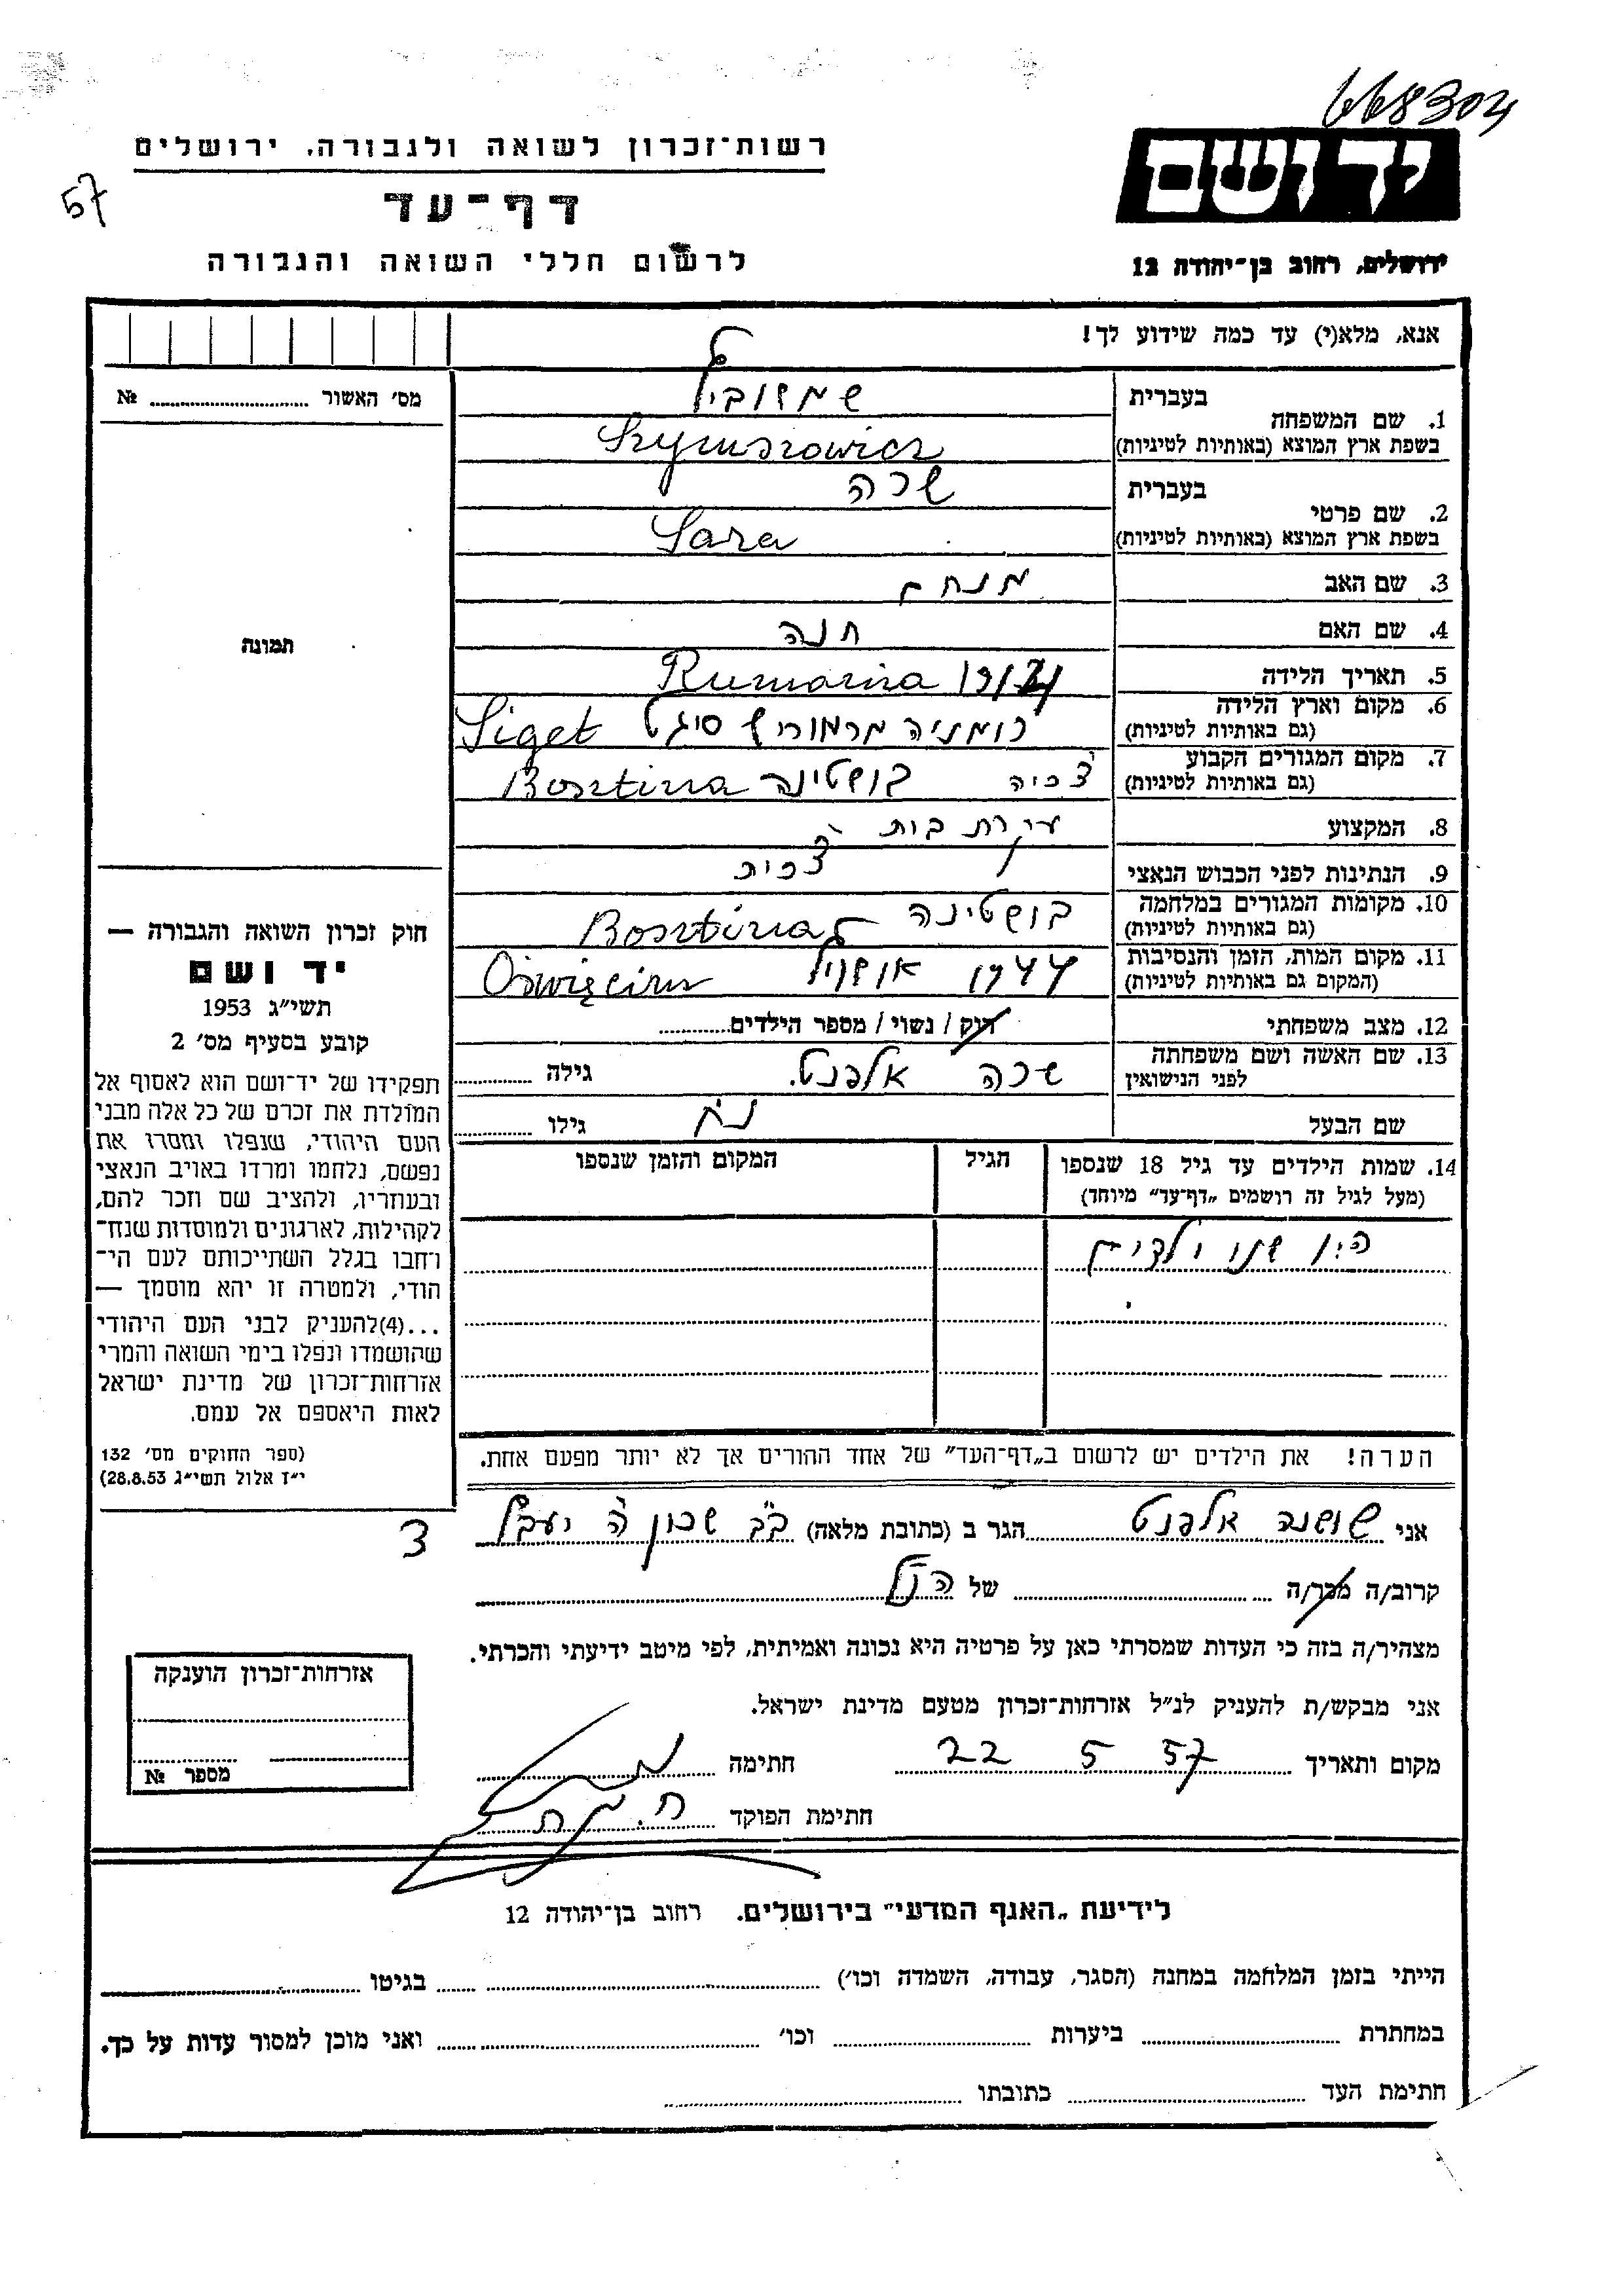 668304
רשות־זכרון לשואה ולגבורה, ירושלים
יד ושם
57
דף־עד
לרשום חללי השואה והגבורה
ירושלים, רחוב בן־יהודה 12
אנא, מלא(י) עד כמה שידוע לך!
מס׳ האשור № 
1. שם המשפחה
בעברית
בשפת ארץ המוצא (באותיות לטיניות)
2. שם פרטי
בעברית שרה
בשפת ארץ המוצא (באותיות לטיניות) Sara
3. שם האב מנחם
4. שם האם חנה
תמונה
5. תאריך הלידה Rumania
6. מקום וארץ הלידה
(גם באותיות לטיניות) רומניה מרמורש סיגט Siget
7. מקום המגורים הקבוע
(גם באותיות לטיניות) צ׳כיה בושטינה Bosztina
8. המקצוע עקרת בית
9. הנתינות לפני הכבוש הנאצי צ׳כית
10. מקומות המגורים במלחמה
(גם באותיות לטיניות) בושטינה Bosztina
11. מקום המות, הזמן והנסיבות
(המקום גם באותיות לטיניות) 1944 Oświęcim
12. מצב משפחתי רוק / נשוי / מספר הילדים
13. שם האשה ושם משפחתה
לפני הנישואין שרה אלפנט. גילה
שם הבעל גילו
14. שמות הילדים עד גיל 18 שנספו
(מעל לגיל זה רושמים „דף־עד״ מיוחד)
הגיל
המקום והזמן שנספו
היו שני ילדים
הערה! את הילדים יש לרשום ב„דף־העד״ של אחד ההורים אך לא יותר מפעם אחת.
חוק זכרון השואה והגבורה —
יד ושם
תשי״ג 1953
קובע בסעיף מס׳ 2
תפקידו של יד־ושם הוא לאסוף אל
המולדת את זכרם של כל אלה מבני
העם היהודי, שנפלו ומסרו את
נפשם, נלחמו ומרדו באויב הנאצי
ובעוזריו, ולהציב שם וזכר להם,
לקהילות, לארגונים ולמוסדות שנח־
רחבו בגלל השתייכותם לעם הי־
הודי, ולמטרה זו יהא מוסמך —
...(4)להעניק לבני העם היהודי
שהושמדו ונפלו בימי השואה והמרי
אזרחות־זכרון של מדינת ישראל
לאות היאספם אל עמם.
(ספר החוקים מס׳ 132
י״ז אלול תשי״ג 28.8.53)
אני שושנה אלפנט הגר ב (כתובת מלאה) ב״ב שכון
קרוב/ה מכר/ה של הנ״ל
מצהיר/ה בזה כי העדות שמסרתי כאן על פרטיה היא נכונה ואמיתית, לפי מיטב ידיעתי והכרתי.
אני מבקש/ת להעניק לנ״ל אזרחות־זכרון מטעם מדינת ישראל.
מקום ותאריך 22 5 57 חתימה
חתימת הפוקד
אזרחות־זכרון הוענקה
מספר №
לידיעת „האגף המדעי״ בירושלים. רחוב בן־יהודה 12
הייתי בזמן המלחמה במחנה (הסגר, עבודה, השמדה וכו׳) בגיטו
במחתרת ביערות וכו׳ ואני מוכן למסור עדות על כך.
חתימת העד כתובתו